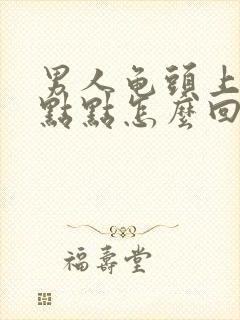 男人龟頭上
點點怎麼回
福壽堂